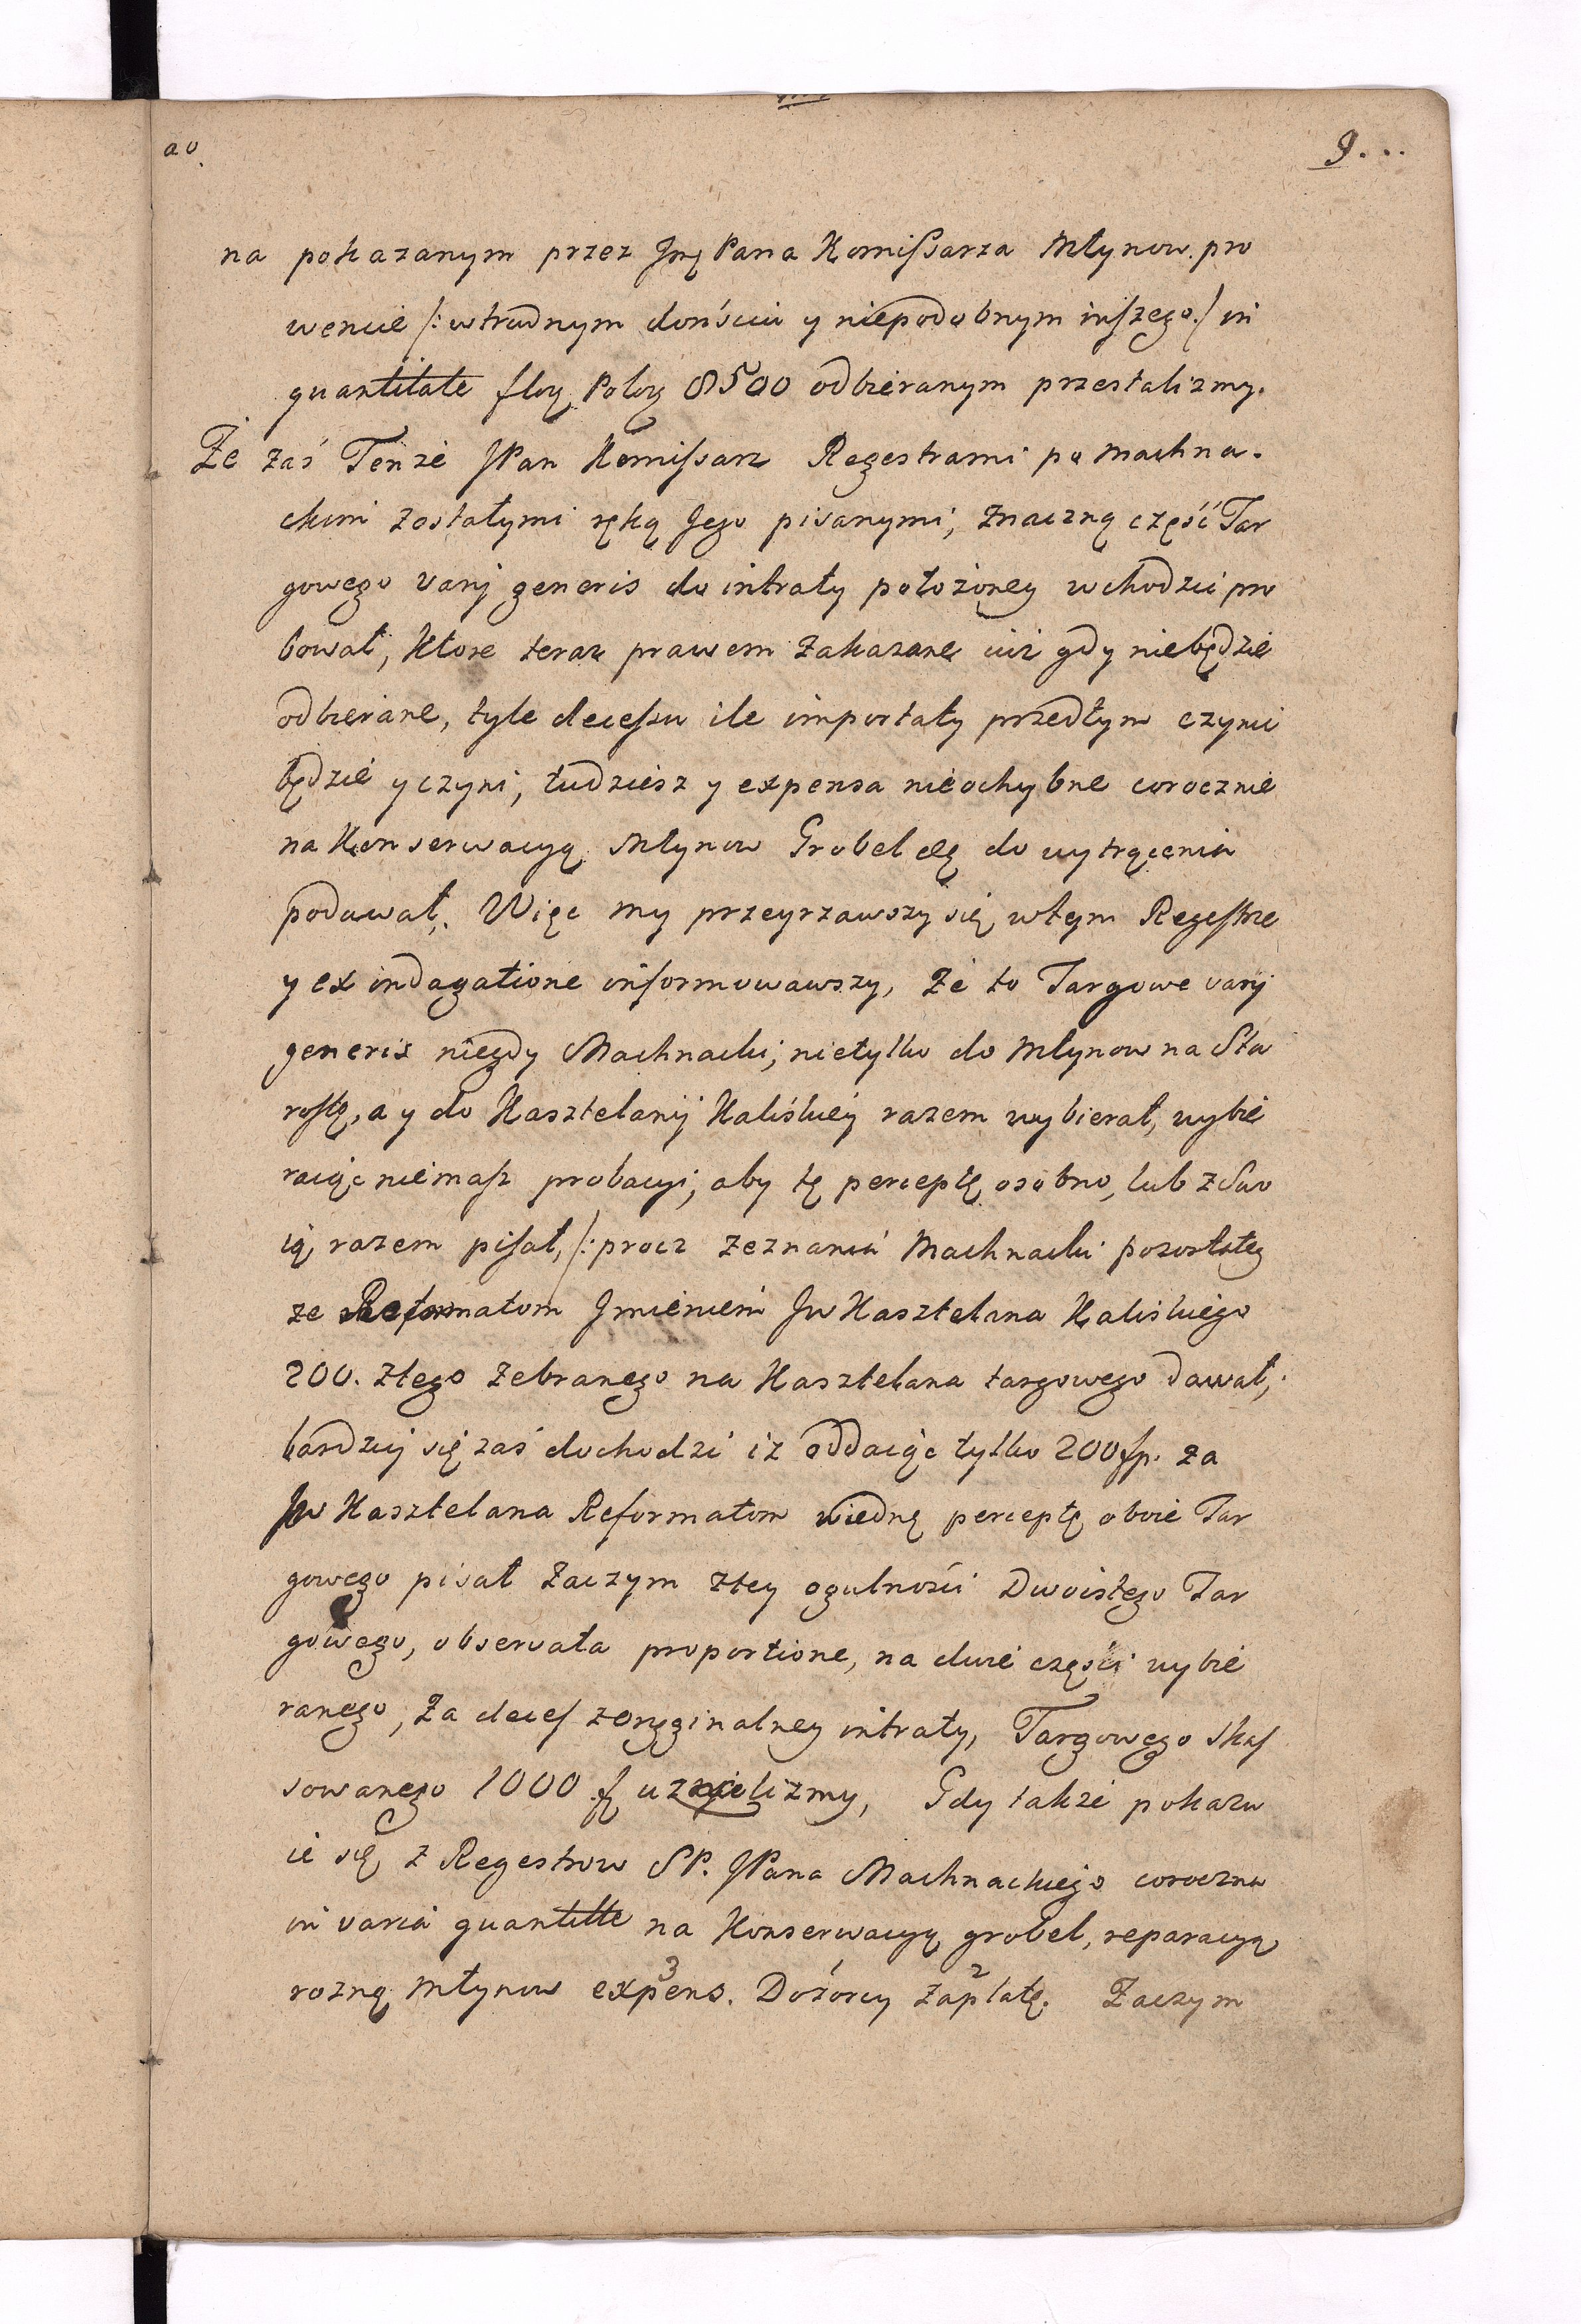 9...
na pokazanym przez Jmę Pana Komissarza Młynow pro
wencie /: w trudnym dońsciu y niepodobnym inszego :/ in
quantitate flor. Polor. 8500 odbieranym przestalizmy.
Że zaś Tenże JPan Komissarz Regestrami po Machna-
ckim zostałymi ręką Jego pisanymi, znaczną część Tar
gowego varij generis do intraty położoney wchodzić pro
bował, ktore teraz prawem zakazane iuż gdy niebędzie
odbierane, tyle decessu ile importały przedtym czynić
będzie y czyni, tudziesz y expensa nieochybne corocznie
na Konserwacyą Młynow Grobel etc do wytrącenia
podawał. Więc my przeyrzawszy się w tym Regestrze
y ex indagatione informowawszy, że to Targowe varij
generis niegdy Machnacki, nietylko do Młynow na Sta
rostę, a y do Kasztelanij Kaliskiey razem wybierał, wybie
raiąc niemasz probacyi, aby tę perceptę osobno, lub z Swo
ią razem pisał, /: procz zeznania Machnacki pozostałey
ze Reformatom Jmieniem Jw Kasztelana Kaliskiego
200. złtego zebranego na Kasztelana targowego dawał,
bardziej się zaś dochodzi iż oddaiąc tylko 200 fp. za
Jw Kasztelana Reformatom w iedną perceptę oboie Tar
gowego pisał zaczym z tey ogulności Dwoistego Tar
gowego, observata proportione, na dwie części wybie
ranego, za deces z oryginalney intraty, Targowego skas
sowanego 1000 f uznalizmy, Gdy także pokazu
ie się z Regestrow SP. JPana Machnackiego coroczna
in varia quantitte na Konserwacyą grobel, reparacyą
rozną Młynow expens. Dozorcy zapłatę. Zaczym